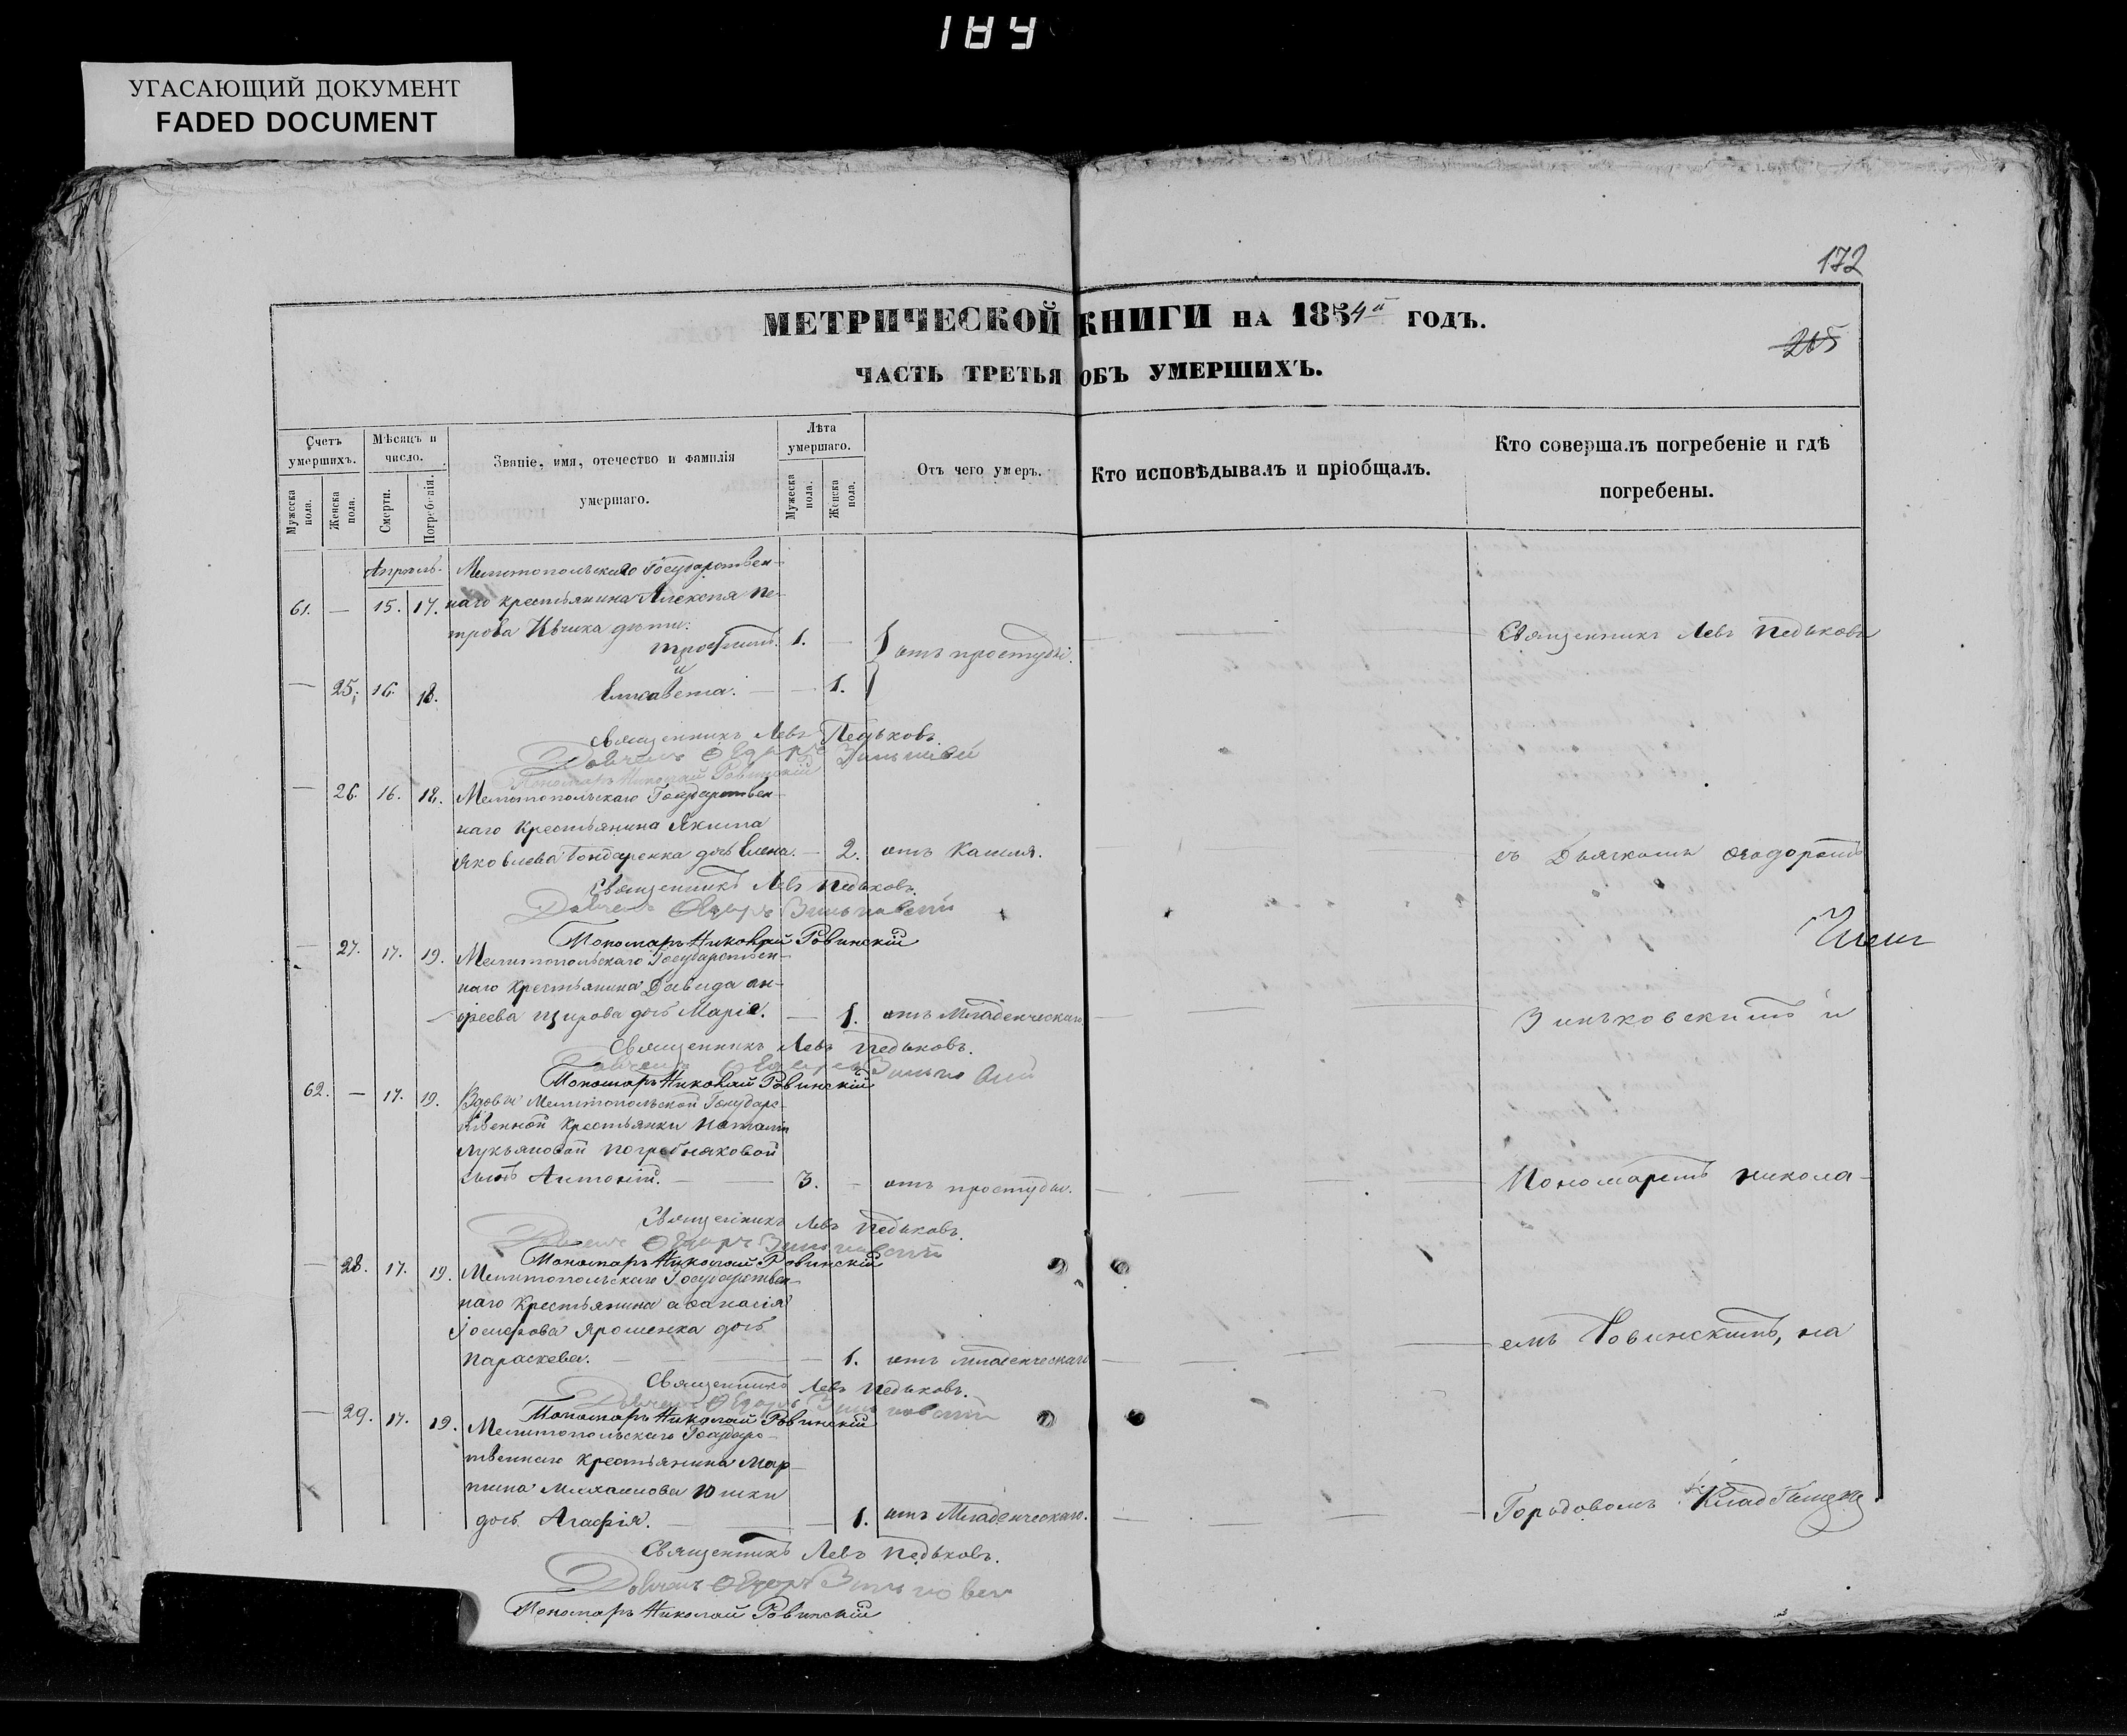 189
УГАСАЮЩИЙ ДОКУМЕНТ
FADED DOCUMENT
172
МЕТРИЧЕСКОЙ КНИГИ НА 1854й ГОДЪ.
205
ЧАСТЬ ТРЕТЬЯ ОБЪ УМЕРШИХЪ.
Счетъ умершихъ.
Мужеска пола.
Женска пола.
Мѣсяцъ и число.
Смерти.
Погребенія.
Званіе, имя, отечество и фамилія умершаго.
Лѣта умершаго.
Мужеска пола.
Женска пола.
Отъ чего умеръ.
Кто исповѣдывалъ и пріобщалъ.
Кто совершалъ погребеніе и гдѣ погребены.
Апрѣль. Мелитопольскаго Государствен-
61. — 15. 17. наго крестьянина Алексѣя Пе-
трова дѣти:
Трофимъ. 1. — отъ простуды. Священникъ Левъ Педьковъ
и
— 25. 16. 18. Елисавета. — 1.
Священникъ Левъ Педьковъ.
Пономарь Николай Ровинскій
— 26. 16. 18. Мелитопольскаго Государствен-
наго Крестьянина Якима
Яковлева Бондаренка дочь Елена. — 2. отъ Кашля. съ Дьячкомъ Ѳеодоромъ
Священникъ Левъ Педьковъ.
Дьячекъ Ѳедоръ Зиньковскій
Пономарь Николай Ровинскій
— 27. 17. 19. Мелитопольскаго Государствен-
наго Крестьянина Давида Ан-
дреева дочь Марія. — 1. отъ Младенческаго. Зиньковскимъ и
Священникъ Левъ Педьковъ.
Пономарь Николай Ровинскій
62. — 17. 19. Вдовы Мелитопольской Государс-
твенной Крестьянки
Лукьяновой Погребняковой
сынъ Антоній. — 3. — отъ простуды. Пономаремъ Никола-
Священникъ Левъ Педьковъ.
Дьячекъ Ѳедоръ Зиньковскій
Пономарь Николай Ровинскій
— 28. 17. 19. Мелитопольскаго Государствен-
наго Крестьянина Аѳанасія
Іосифова Ярошенка дочь
Параскева. — 1. отъ младенческаго емъ Ровинскимъ, на
Священникъ Левъ Педьковъ.
Дьячекъ Ѳедоръ Зиньковскій
Пономарь Николай Ровинскій
— 29. 17. 19. Мелитопольскаго Государс-
твеннаго Крестьянина Мар-
тина Михайлова Юшки
дочь Агафія. — 1. отъ Младенческаго. Городовомъ Кладбищѣ
Священникъ Левъ Педьковъ.
Дьячекъ Ѳедоръ
Пономарь Николай Ровинскій